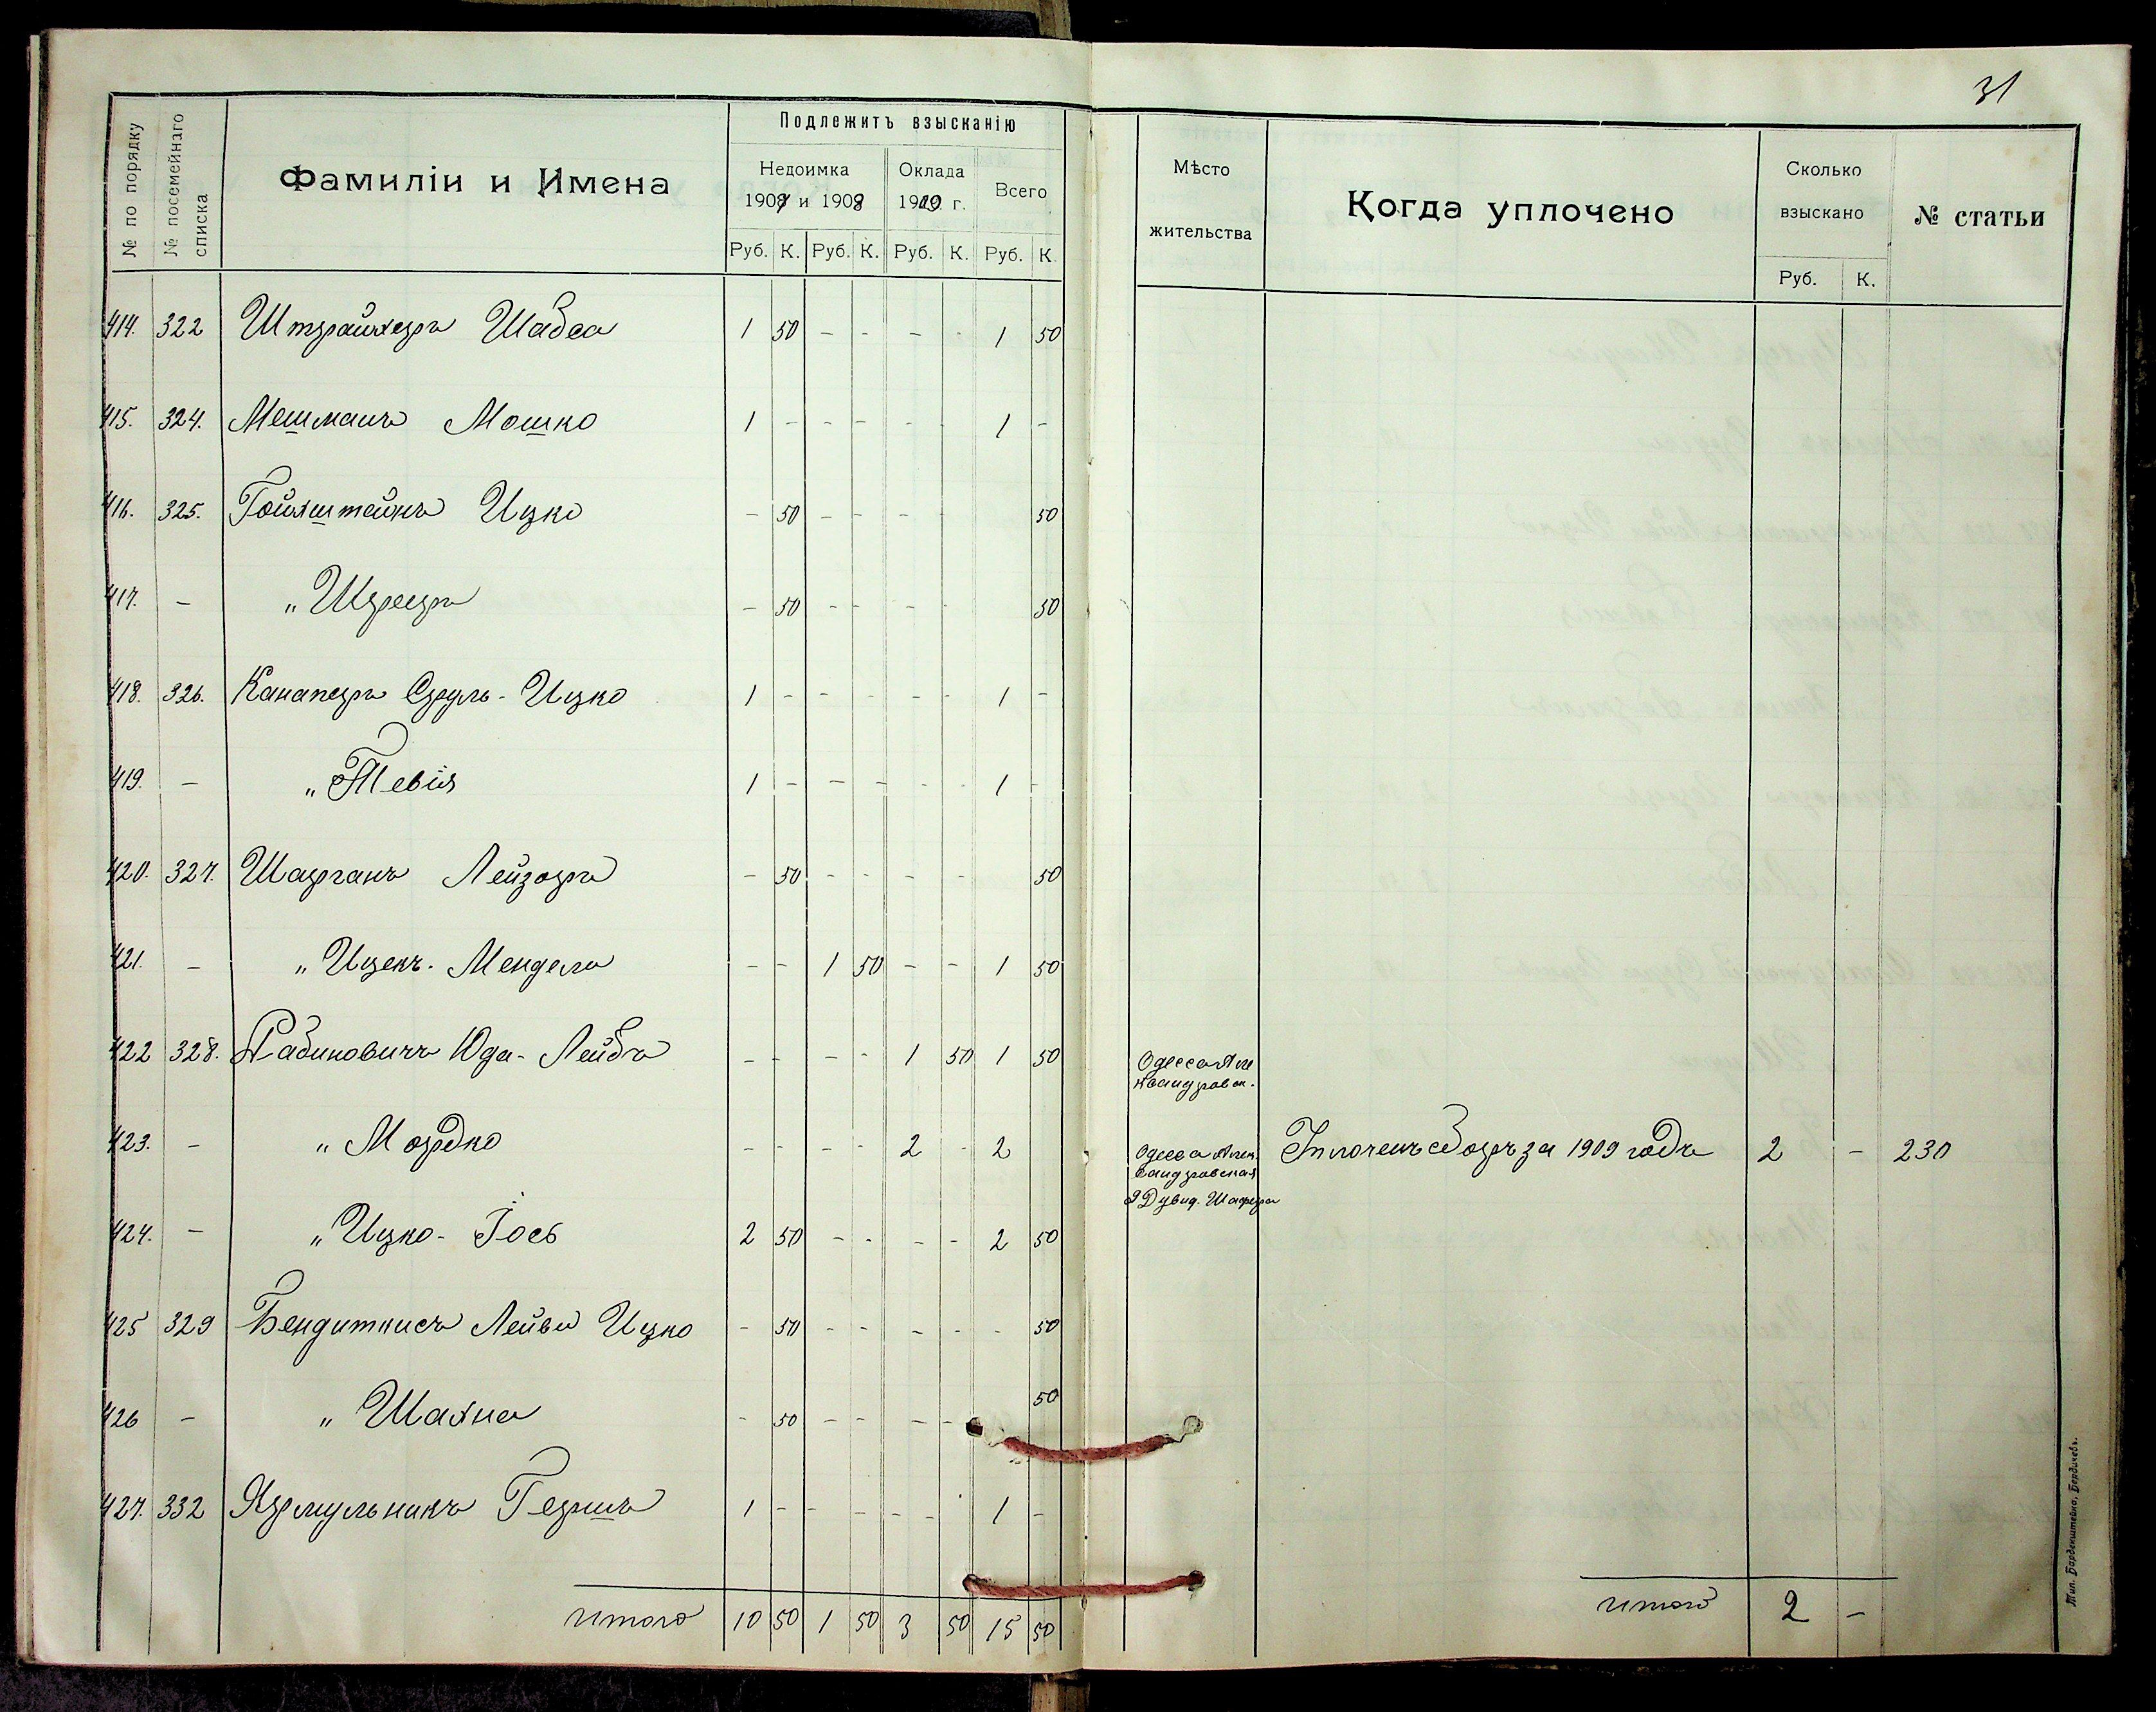 31
№ по порядку
№ посемейнаго списка
Фамиліи и Имена
Подлежитъ взысканію
Недоимка
1907 и 1908
Оклада
1909 г.
Всего
Руб. К. Руб. К. Руб. К. Руб. К.
Мѣсто
жительства
Когда уплочено
Сколько
взыскано
Руб. К.
№ статьи
414. 322 Штрайхеръ Шабса 1 50 - - - - 1 50
415. 324. Мешманъ Мошко 1 - - - - - 1 -
416. 325. Гойхштейнъ Ицко - 50 - - - - 50
417. - " Шреръ - 50 - - - - 50
418. 326. Канаперъ Сруль-Ицко 1 - - - - - 1 -
419. - " Тевія 1 - - - - - 1 -
420. 327. Шарганъ Лейзоръ - 50 - - - - 50
421. - " Ицекъ-Мендель - - 1 50 - - 1 50
422 328. Рабиновичъ Юда-Лейбъ - - - - 1 50 1 50
Одесса Але
ксандровск.
423. - " Мордко - - - - 2 - 2
Одесса Алек
сандровская
Уплоченъ сборъ за 1909 годъ 2 - 230
424. - " Ицко-Іось 2 50 - - - - 2 50
425 329 Бендиткисъ Лейви Ицко - 50 - - - - - 50
426 - " Шахна - 50 - - - - 50
427. 332 Ярмульникъ Гершъ 1 - - - - - 1 -
итого 10 50 1 50 3 50 15 50
итого 2 -
Тип. Барденштейна, Бердичевъ.